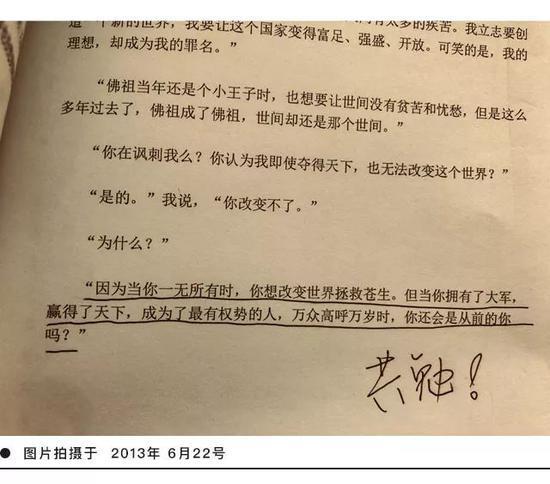 有太多的疾苦。我立志要创
造一个新的世界，我要让这个国家变得富足、强盛、开放。可笑的是，我的
理想，却成为我的罪名。”
“佛祖当年还是个小王子时，也想要让世间没有贫苦和忧愁，但是这么
多年过去了，佛祖成了佛祖，世间却还是那个世间。”
“你在讽刺我么？你认为我即使夺得天下，也无法改变这个世界？”
“是的。”我说，“你改变不了。”
“为什么？”
“因为当你一无所有时，你想改变世界拯救苍生。但当你拥有了大军，
赢得了天下，成为了最有权势的人，万众高呼万岁时，你还会是从前的你
吗？”
共勉！
● 图片拍摄于 2013年 6月22号